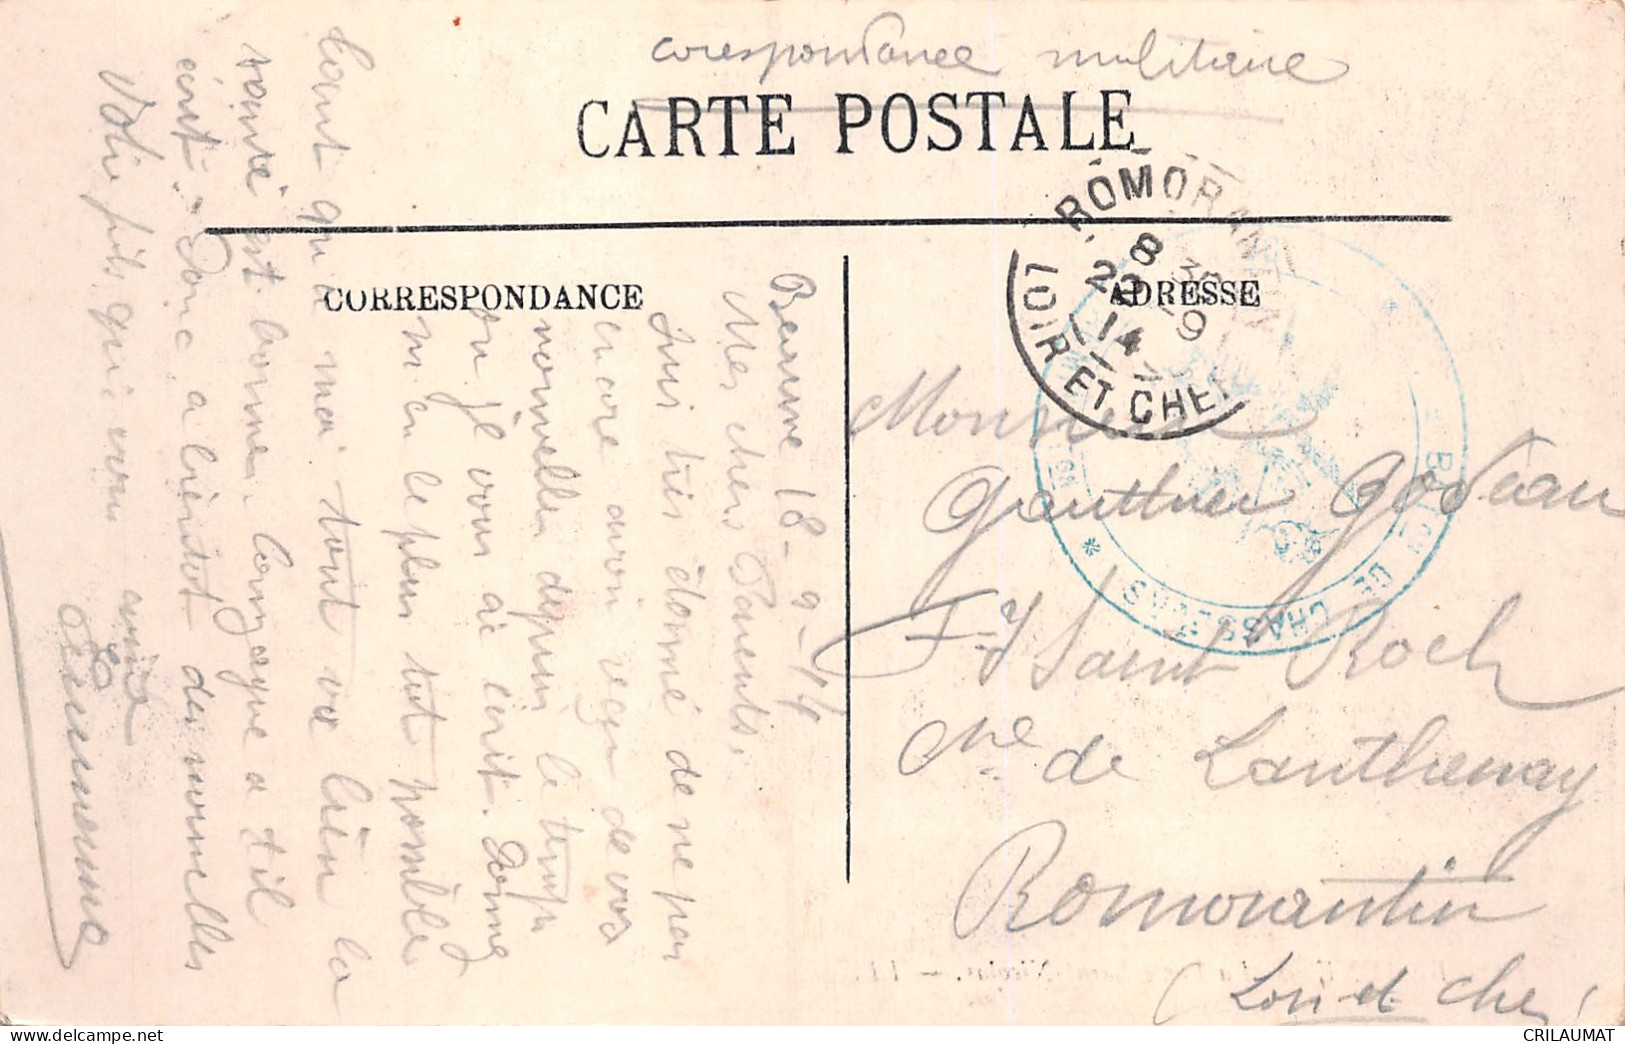 corespondance militaire
CARTE POSTALE
CORRESPONDANCE
ADRESSE
ROMORANTIN
8 30
22 - 9
14
LOIR ET CHER
* BATON DE CHASSEURS *
Beaune 18-9-14
Mes chers Parents,
suis très étonné de ne pas
encore avoir reçu de vos
nouvelles depuis le temps
ou je vous ai écrit. Donne
m'en le plus tot possible
Quant qu'a moi tout va bien la
santé est bonne.
écrit. Donc a bientot des nouvelles
Votre fils qui vous aime
Monsieur
Gauthier Godeau
Fg Saint Roch
Cne de Lanthenay
Romorantin
(Loir et Cher)
CRILAUMAT